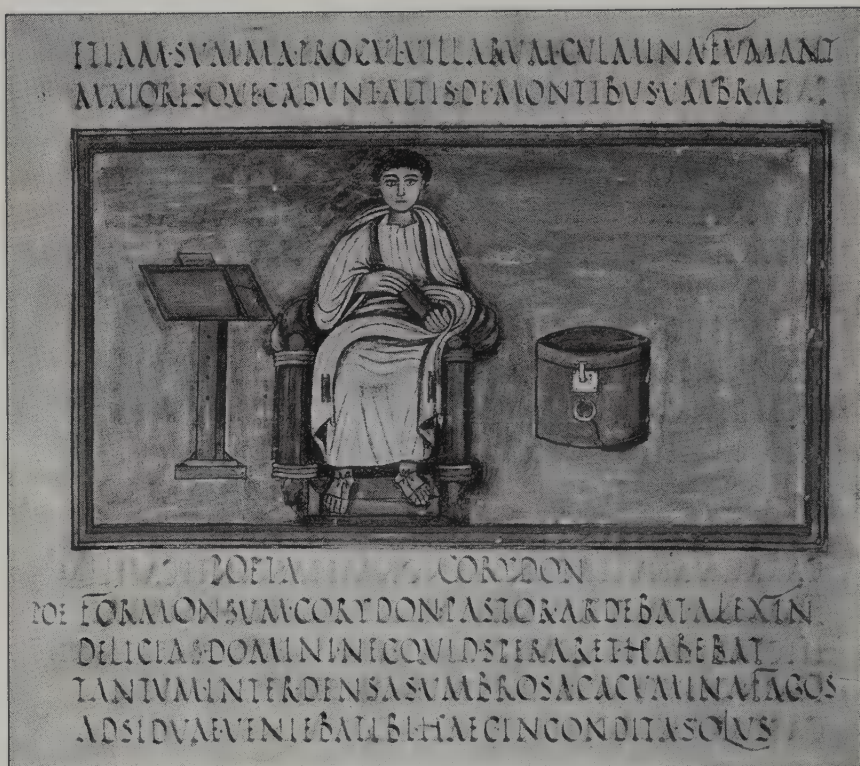 ETIAM·SVMMA·PROCVL·VILLARVM·CVLMINA·FVMANT
MAIORESQVE·CADVNT·ALTIS·DE·MONTIBVS·VMBRAE
POETA CORYDON
POE FORMONSVM·CORYDON·PASTOR·ARDEBAT·ALEXIN
DELICIAS·DOMINI·NEC·QVID·SPERARET·HABEBAT
TANTVM·INTER·DENSAS·VMBROSA·CACVMINA·FAGOS
ADSIDVAE·VENIEBAT·IBI·HAEC·INCONDITA·SOLVS